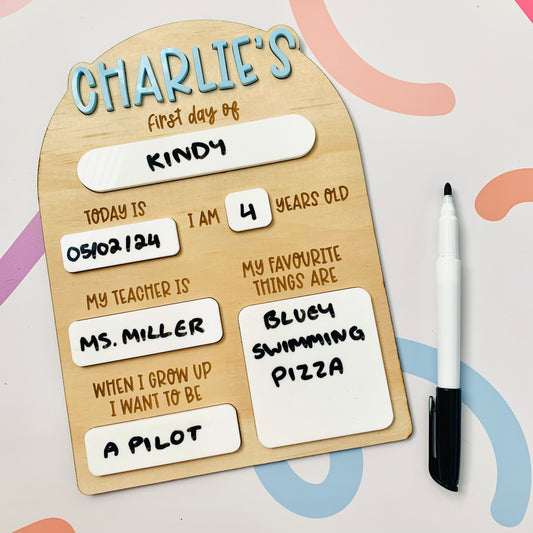 CHARLIE'S
first day of
KINDY
TODAY IS
05/02/24
I AM 4 YEARS OLD
MY TEACHER IS
MS. MILLER
WHEN I GROW UP
I WANT TO BE
A PILOT
MY FAVOURITE
THINGS ARE
BLUEY
SWIMMING
PIZZA